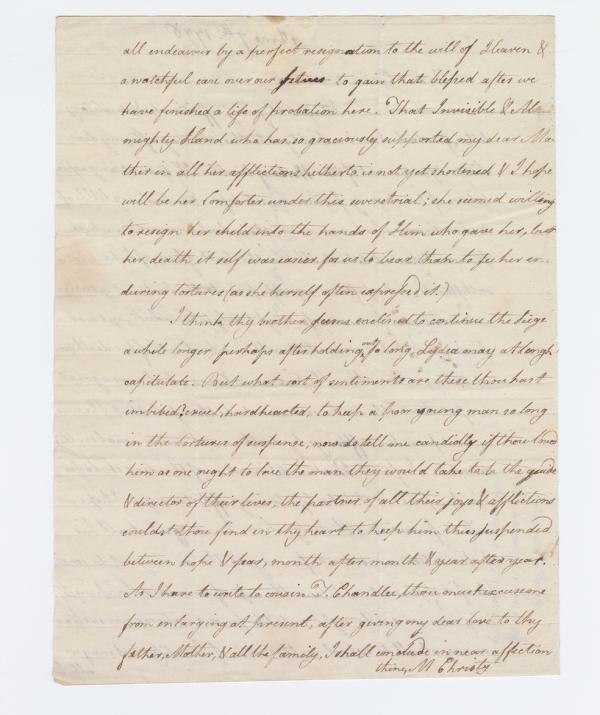 all endeavour by a perfect resignation to the will of Heaven &
a watchful care over our selves to gain that blessed after we
have finished a life of probation here. That Invisible & Al
mighty Hand who has so graciously supported my dear Mo
ther in all her afflictions hitherto is not yet shortened & I hope
will be her Comforter under this severe trial; she seemed willing
to resign her child into the hands of Him who gave her, but
her death it self was easier for us to bear than to see her en
during tortures (as she herself often expressed it.)
I think thy brother seems enclined to continue the siege
a while longer, perhaps after holding out so long Lydia may at length
capitulate. But what sort of sentiments are these thou hast
imbibed? cruel, hardhearted, to keep a poor young man so long
in the tortures of suspense, now do tell me candidly if thou loved
him as one ought to love the man they would take to be the guide
& director of their lives, the partner of all their joys & afflictions
couldst thou find in thy heart to keep him thus suspended
between hope & fear, month after month & year after year.
As I have to write to cousin T. Chandlee, thou must excuse me
from enlarging at present, after giving my dear love to thy
father, Mother, & all the family, I shall conclude in near affection
thine, M Christy